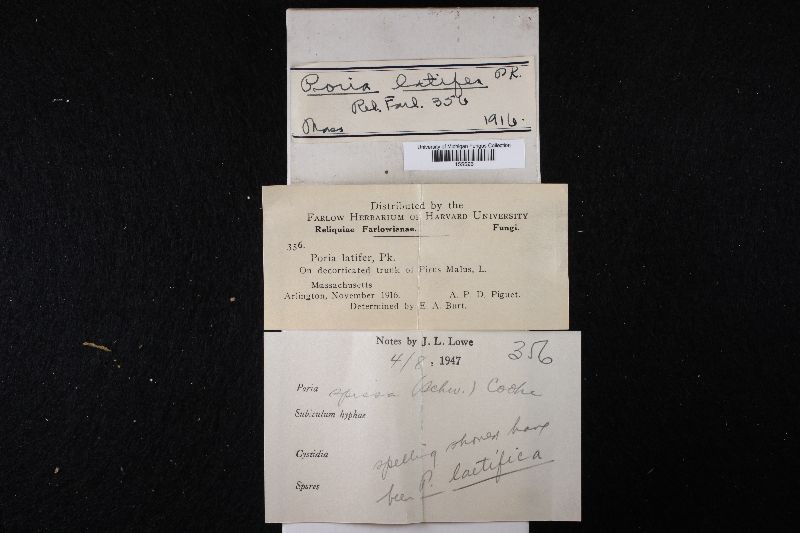 Poria latifer PK.
Rel. Farl. 356
Mass 1916.
University of Michigan Fungus Collection
Distributed by the
FARLOW HERBARIUM OF HARVARD UNIVERSITY
Reliquiae Farlowianae. Fungi.
356.
Poria latifer, Pk.
On decorticated trunk of Pirus Malus, L.
Massachusetts
Arlington, November 1916. A. P. D. Piguet.
Determined by E. A. Burt.
Notes by J. L. Lowe
356
4/8, 1947
Poria spissa (Schw.) Cooke
Subiculum hyphae
Cystidia
Spores
spelling should have
been P. laetifica